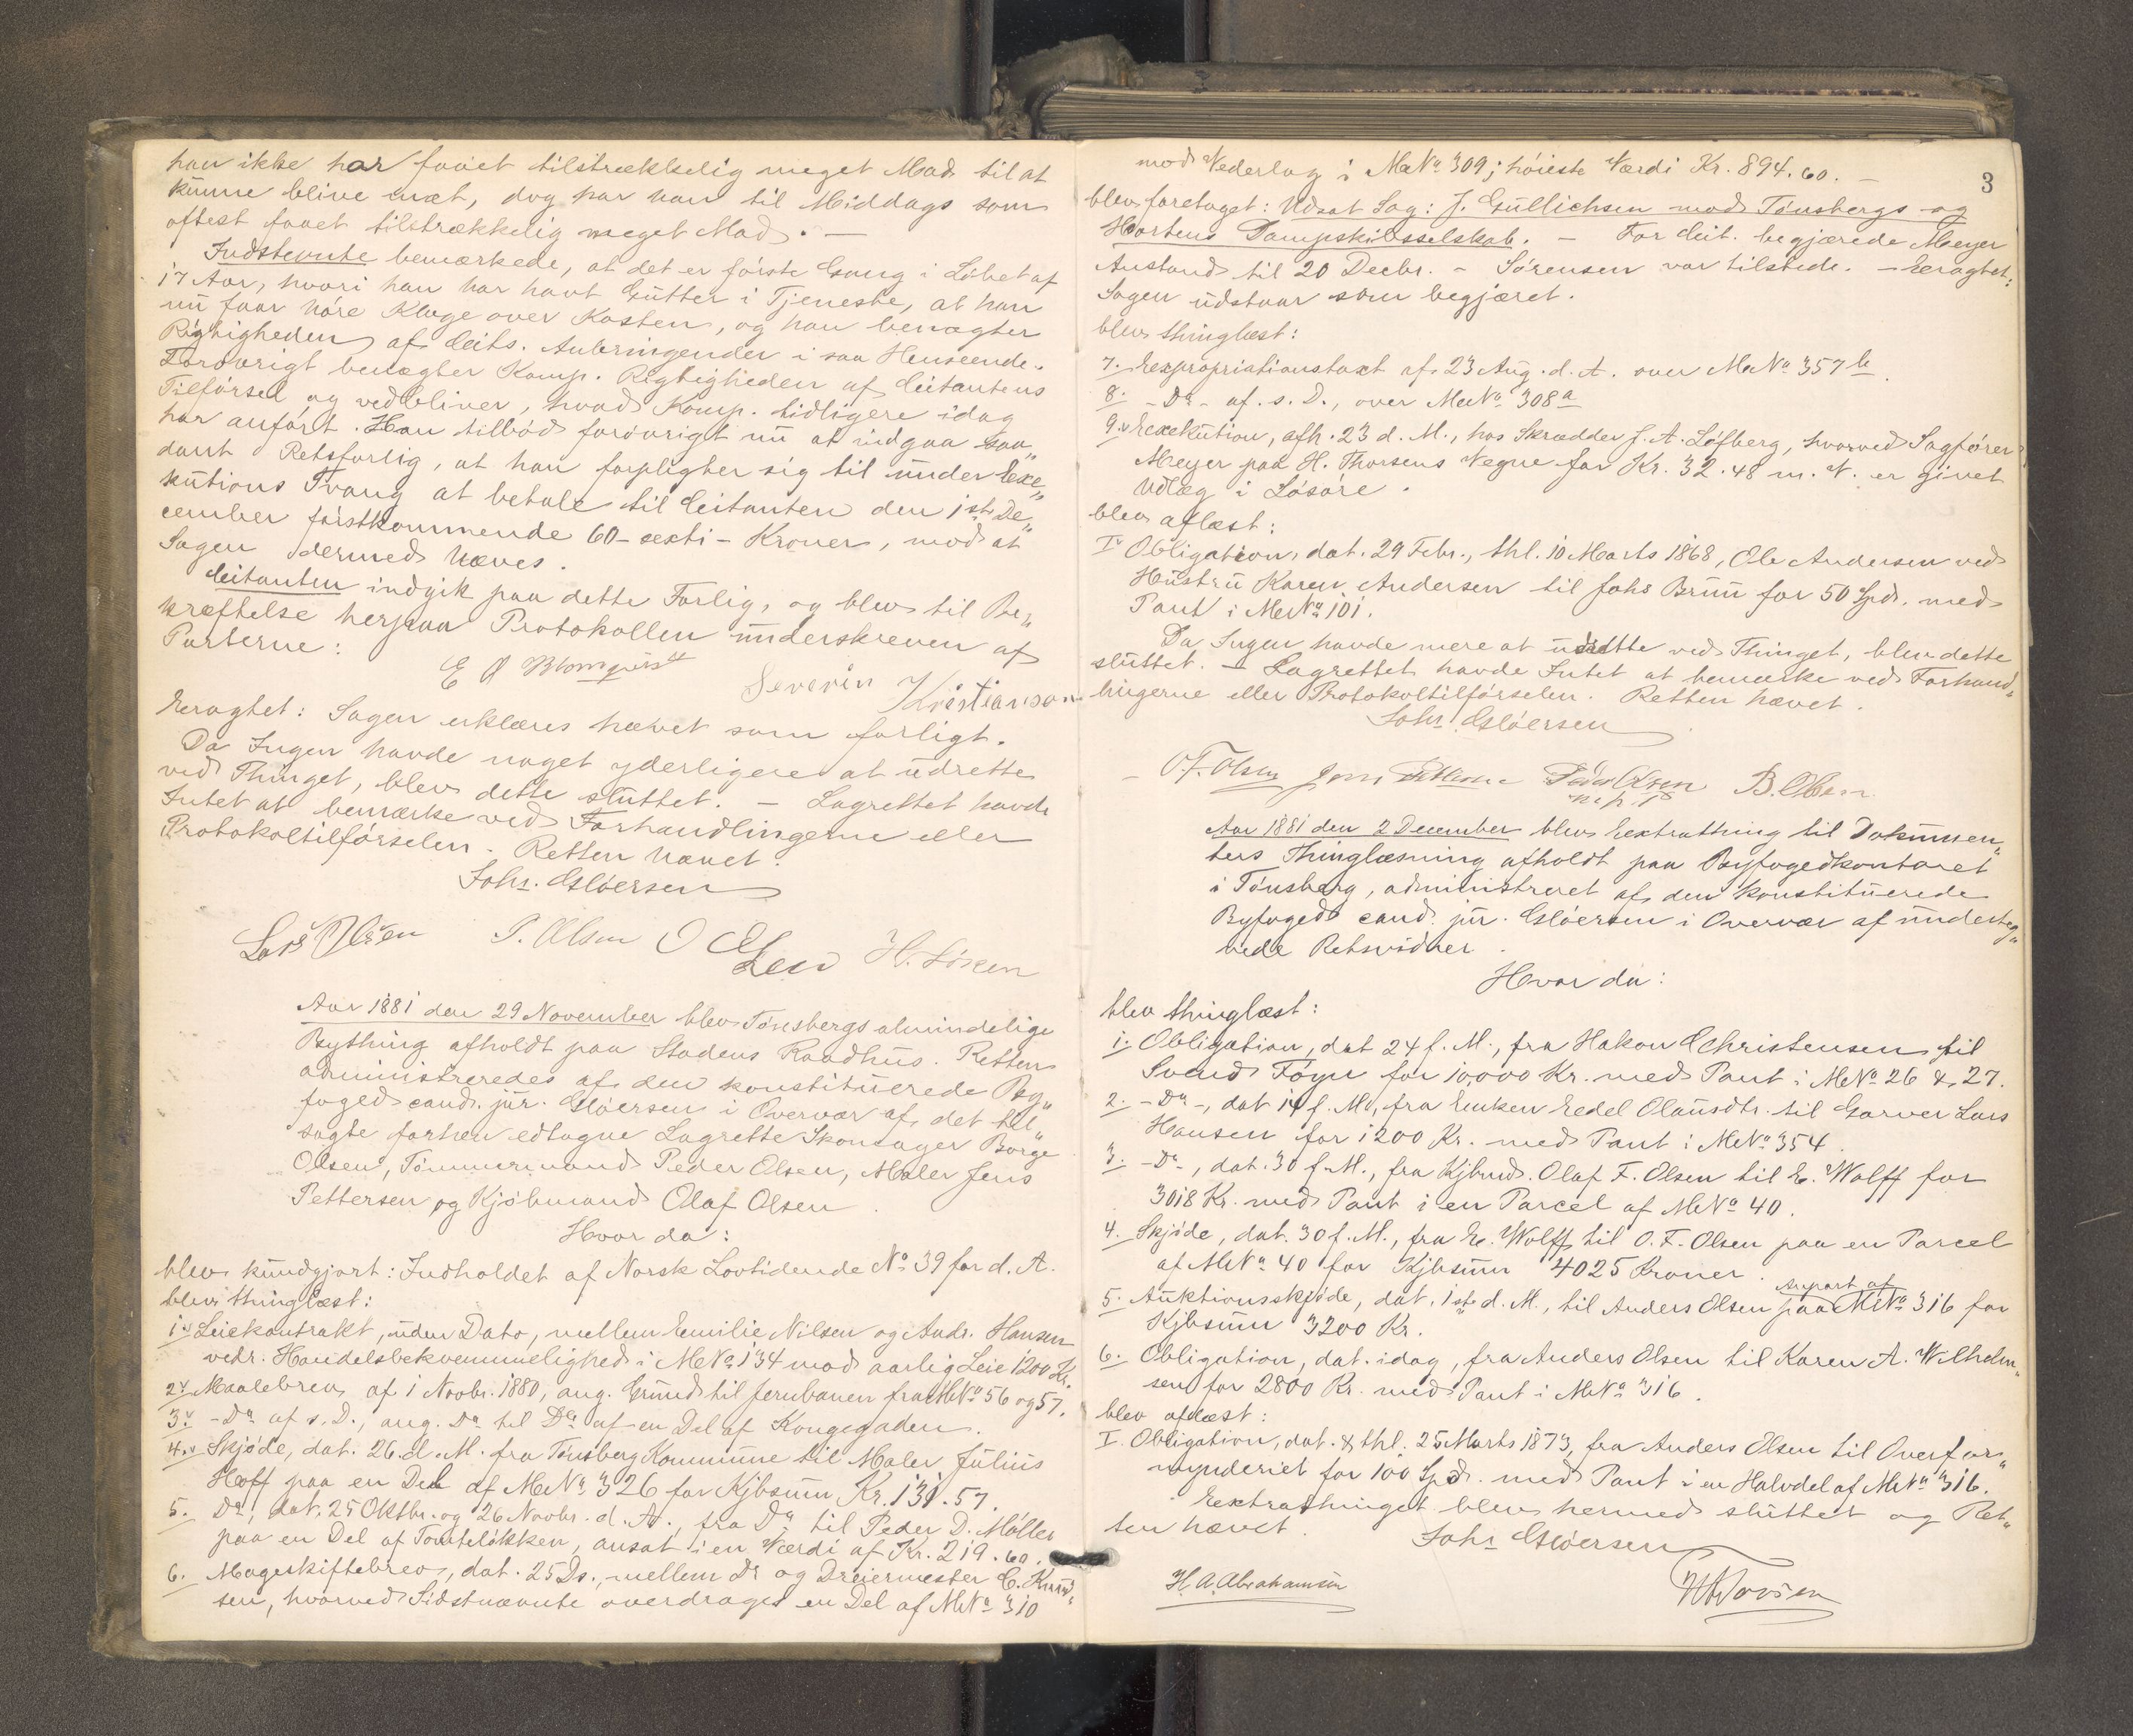 han ikke har faaet tilstrækkelig meget Mad til at
kunne blive mæt, dog har han til Middags som
oftest faaet tilstrækkelig meget Mad. —
Indstevnte bemærkede, at det er første Gang i Løbet af
17 Aar, hvori han har havt Gutter i Tjeneste, at han
nu faar høre Klage over Kosten, og han benægter
Rigtigheden af Citts. Anbringender i saa Henseende.
Forøvrigt benægter Komp. Rigtigheden af Citantens
Tilførsel og vedbliver, hvad Komp. tidligere idag
har anført. Han tilbød forøvrigt nu at indgaa saa„
dant Retsforlig, at han forpligter sig til under Exe„
kutions Tvang at betale til Citanten den 1ste De„
cember førstkommende 60 - sexti - Kroner, mod at
Sagen dermed hæves.
Citanten indgik paa dette Forlig, og blev til Be„
kræftelse herpaa Protokollen underskreven af
Parterne:
E A Blomqvist
Severin Kristianson
Eragtet: Sagen erklæres hævet som forligt.
Da Ingen havde noget yderligere at udrette
ved Thinget, blev dette sluttet. — Lagrettet havde
Intet at bemærke ved Forhandlingerne eller
Protokoltilførselen. Retten hævet.
Johs. Gløersen
Lars Olsen P. Olsen O Olsen H. Løken
Aar 1881 den 29 November blev Tønsbergs almindelige
Bything afholdt paa Stadens Raadhus. Retten
administreredes af den konstituerede By„
foged cand. jur. Gløersen i Overvær af det til„
sagte forhen edtagne Lagrette Skomager Børge
Olsen, Tømmermand Peder Olsen, Maler Jens
Pettersen og Kjøbmand Olaf Olsen.
Hvor da:
blev kundgjort: Indholdet af Norsk Lovtidende No 39 for d. A.
blev thinglæst:
1. Leiekontrakt, uden Dato, mellem Emilie Nilsen og Andr. Hansen
vedr. Handelsbekvemmelighed i MNo 134 mod aarlig Leie 1200 Kr.
2. Maalebrev af 1 Novbr. 1880, ang. Grund til Jernbanen fra MNo 56 og 57.
3. - Do af s. D., ang. Do til Do af en Del af Kongegaden.
4. Skjøde, dat. 26 d. M. fra Tønsberg Kommune til Maler Julius
Hoff paa en Del af MNo 326 for Kjbsum Kr. 131.57.
5. Do, dat. 25 Oktbr. og 26 Novbr. d. A. fra Do til Peder D. Møller
paa en Del af Tomteløkken, ansat i en Værdi af Kr. 219.60.
6. Mageskiftebrev, dat. 25 Ds., mellem Do og Dreiermester C. Knud„
sen, hvorved Sidstnævnte overdrages en Del af MNo 310
3
mod Vederlag i MNo 309; høieste Værdi Kr. 894.60. —
blev foretaget: Udsat Sag: J. Gullichsen mod Tønsbergs og
Hortens Dampskibsselskab. — For Cit. begjærede Meyer
Anstand til 20 Decbr. - Sørensen var tilstede. - Eragtet:
Sagen udstaar som begjæret.
blev thinglæst:
7. Expropriationstaxt af 23 Aug. d. A. over MNo 357b.
8. - Do - af s. D., over MNo 308a
9. Exekution, afh. 23 d. M., hos Skrædder J. A. Löfberg, hvorved Sagfører
Meyer paa H. Thorsens Vegne for Kr. 32.48 m. V. er givet
Udlæg i Løsøre.
blev aflæst:
I. Obligation, dat. 29 Febr., thl. 10 Marts 1868, Ole Andersen ved
Hustru Karen Andersen til Johs Bruu for 50 Spd. med
Pant i MNo 101.
Da Ingen havde mere at udrette ved Thinget, blev dette
sluttet. - Lagrettet havde Intet at bemærke ved Forhand„
lingerne eller Protokoltilførselen. Retten hævet.
Johs. Gløersen
O. F. Olsen Jens Petterse Peder Olsen B. Olsen
m. p. P.
Aar 1881 den 2 December blev Extrathing til Dokumen„
ters Thinglæsning afholdt paa Byfogedkontoret
i Tønsberg, administreret af den konstituerede
Byfoged cand. jur. Gløersen i Overvær af underteg„
nede Retsvidner.
Hvor da:
blev thinglæst:
1. Obligation, dat 24 f. M., fra Hakon Christensen til
Svend Foyn for 10,000 Kr. med Pant i MNo 26 & 27.
2. - Do -, dat 14 f. M., fra Enken Edel Olausdtr. til Garver Lars
Hansen for 1200 Kr. med Pant i MNo 354.
3. - Do -, dat. 30 f. M., fra Kjbmd. Olaf F. Olsen til E. Wolff for
3018 Kr. med Pant i en Parcel af MNo 40.
4. Skjøde, dat. 30 f. M., fra E. Wolff til O. F. Olsen paa en Parcel
af MNo 40 for Kjbsum 4025 Kroner.
5. Auktionsskjøde, dat. 1ste d. M., til Anders Olsen paa Anpart af MNo 316 for
Kjbsum 3200 Kr.
6. Obligation, dat. idag, fra Anders Olsen til Karen A. Wilhelm„
sen for 2800 Kr. med Pant i MNo 316.
blev aflæst:
I. Obligation, dat. & thl. 25 Marts 1873, fra Anders Olsen til Overfor„
mynderiet for 100 Spd. med Pant i en Halvdel af MNo 316.
Extrathinget blev hermed sluttet og Ret„
ten hævet.
Johs Gløersen
H. A. Abrahamsen